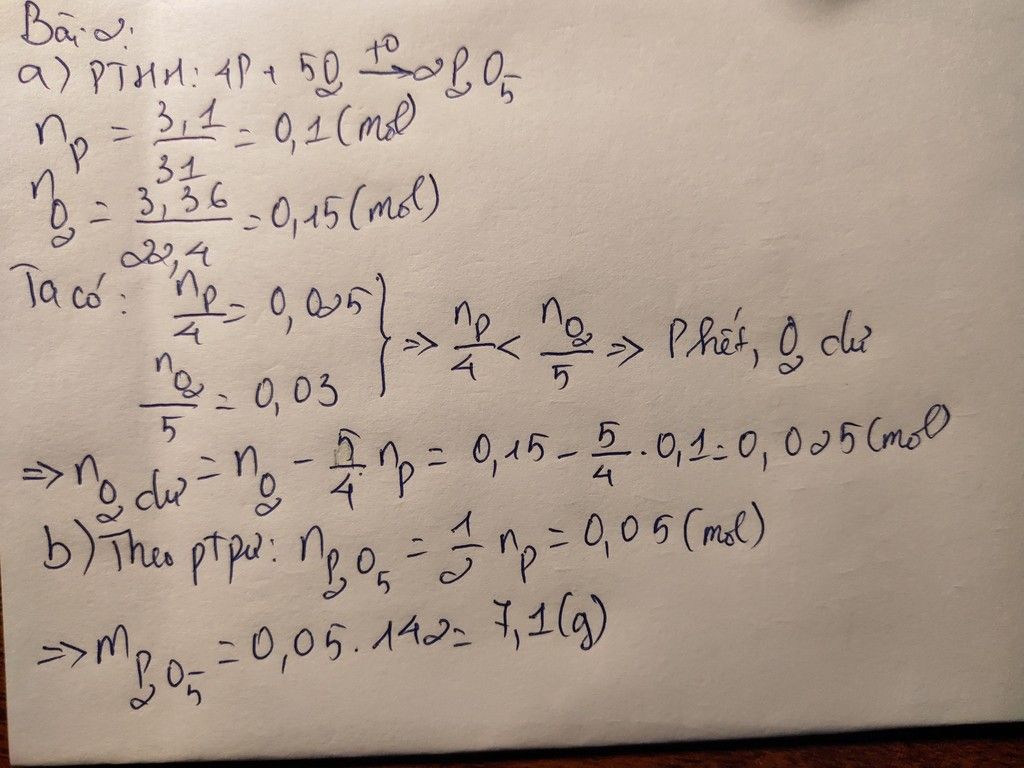 Bài 2:
a) PTHH: 4P + 5O₂ →(t⁰) 2P₂O₅
n_P = 3,1/31 = 0,1 (mol)
n_O₂ = 3,36/22,4 = 0,15 (mol)
Ta có: n_P/4 = 0,025
n_O₂/5 = 0,03
} => n_P/4 < n_O₂/5 => P hết, O₂ dư
=> n_O₂ dư = n_O₂ - 5/4 . n_P = 0,15 - 5/4 . 0,1 = 0,025 (mol)
b) Theo ptpư: n_P₂O₅ = 1/2 n_P = 0,05 (mol)
=> m_P₂O₅ = 0,05 . 142 = 7,1 (g)